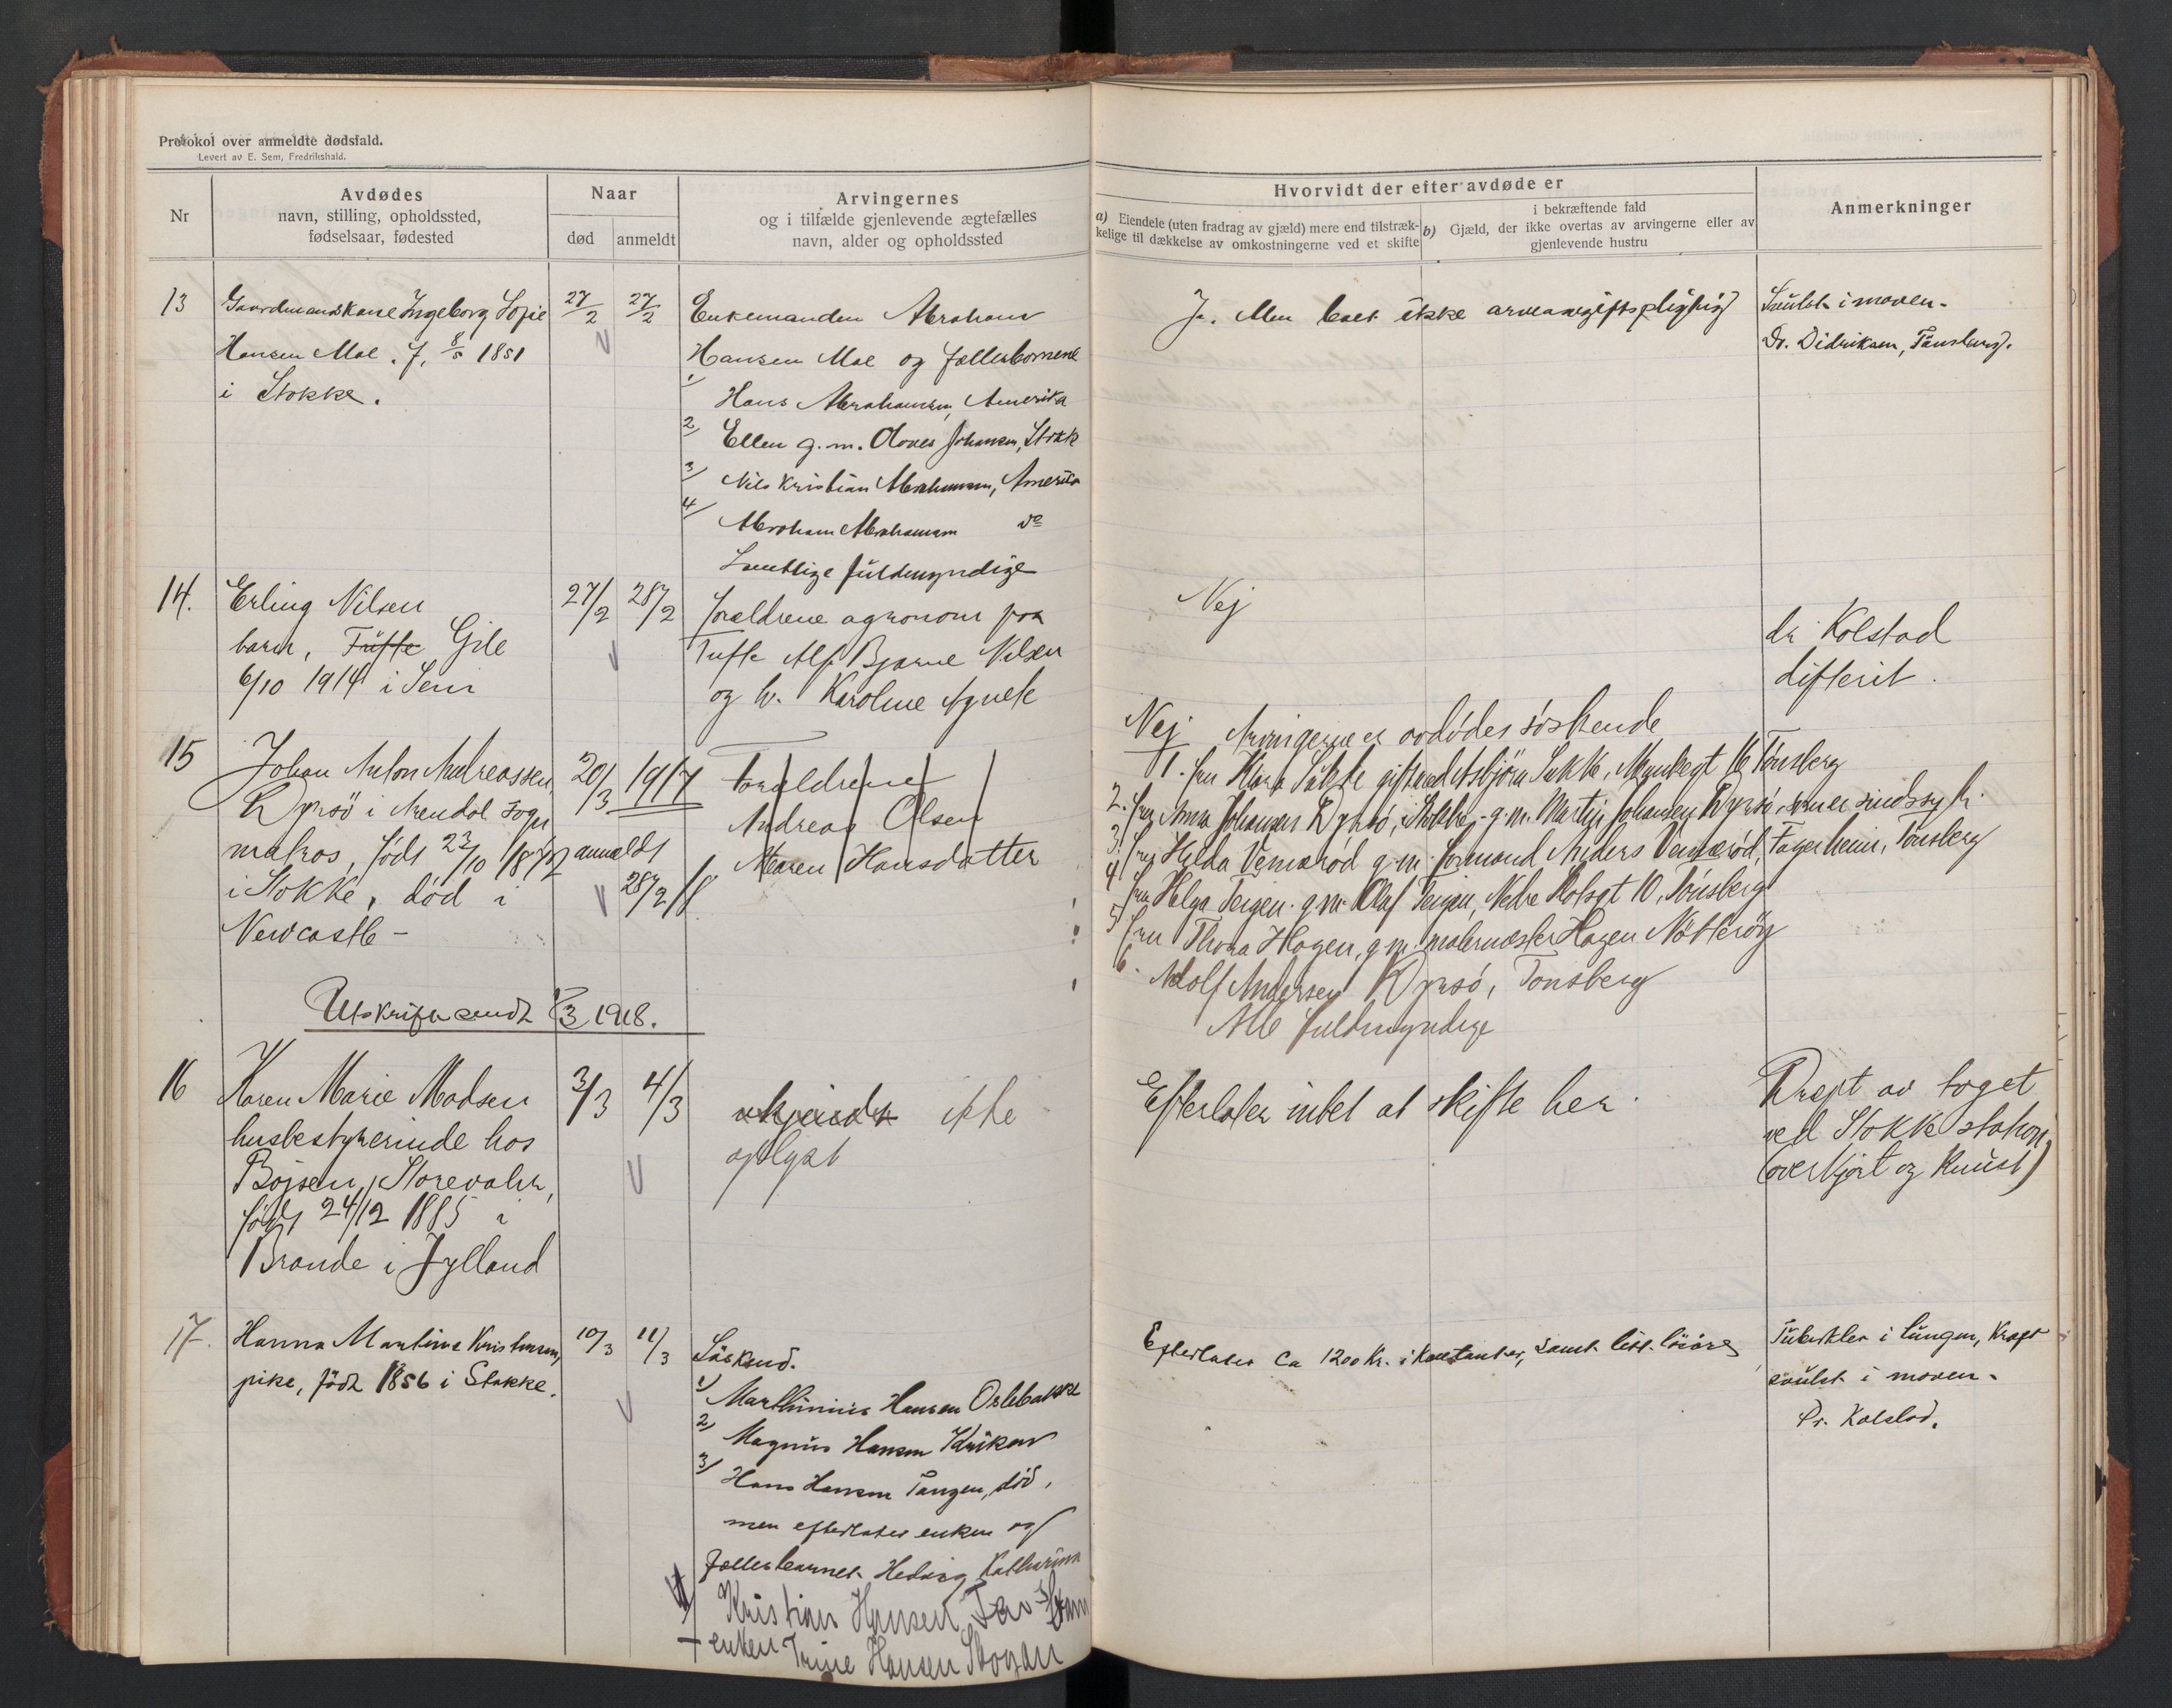 Protokol over anmeldte dødsfald.
Levert av E. Sem, Fredrikshald.
Nr
Avdødes
navn, stilling, opholdssted,
fødselsaar, fødested
Naar
død
anmeldt
Arvingernes
og i tilfælde gjenlevende ægtefælles
navn, alder og opholdssted
Hvorvidt der efter avdøde er
a) Eiendele (uten fradrag av gjæld) mere end tilstræk-
kelige til dækkelse av omkostningerne ved et skifte
i bekræftende fald
b) Gjæld, der ikke overtas av arvingerne eller av
gjenlevende hustru
Anmerkninger
13
Gaardmandskone Ingeborg Sofie
Hansen Moe. f. 8/5 1851
i Stokke.
27/2
27/2
Enkemanden Abraham
Hansen Moe og fællesbørnene
1/ Hans Abrahamsen, Amerika
2/ Ellen g.m. Johansen, Stokke
3/ Nils Kristian Abrahamsen, Amerika
4/ Abraham Abrahamsen do
Samtlige fuldmyndige
Ja. Men boet ikke arveavgiftspligtig
Svulst i maven.
Dr. Didriksen, Tønsberg.
14.
Erling Nilsen
barn, Tufte Gile
6/10 1914 i Sem
27/2
28/2
forældrene agronom paa
Tufte Alf Bjarne Nilsen
og h. Karoline Agnete
Nej
dr Kolstad
difterit.
15
Johan Anton Andreassen,
Dyrsö i Arendal sogn
matros, født 23/10 1872
i Stokke, død i
Newcastle -
20/3 1917
anmeldt
28/2 18
Forældrene
Andreas Olsen
Maren Hansdatter
Nej Arvingerne er avdødes søskende
1. fru Klara Sukke gift med Asbjörn Sukke, Munkegt 16 Tønsberg
2. fru Anna Johansen Dyrsö, Stokke - g.m. Martin Johansen Dyrsö, som er sindssyk.
3. fru Hilda Vemaröd g.m. formand Anders Vemaröd, Fagerheim, Tønsberg
4. fru Helga Teigen g.m. Olaf Teigen, Nedre Slotsgt 10, Tönsberg
5. fru Thora Hagen, g.m. malermester Hagen Nötteröy
6. Adolf Andersen Dyrsö, Tonsberg
Alle fuldmyndige
Utskrift sendt 1/3 1918.
16
Karen Marie Madsen
husbestyrerinde hos
Bojsen, Storevahr,
født 24/12 1885 i
Brande i Jylland
3/3
4/3
ukjendt ikke
oplyst
Efterlater intet at skifte her.
Dræpt av toget
ved Stokke station
(overkjørt og knust)
17.
Hanna Martine Kristensen,
pike, født 1856 i Stokke.
10/3
11/3
Søskend.
1/ Marthinius Hansen Oslebakke
2/ Magnus Hansen Kruken
3/ Hans Hansen Tangen, død,
men efterlater enken og
fællesbarnet Hedvig Katharina
4/ Kristian Hansen
+ enken Trine Hansen Skogan
Efterlater ca 1200 Kr. i Kontanter, samt litt løsøre
Tuberkler i lungen, Kræft
svulst i maven.
Dr. Kolstad.